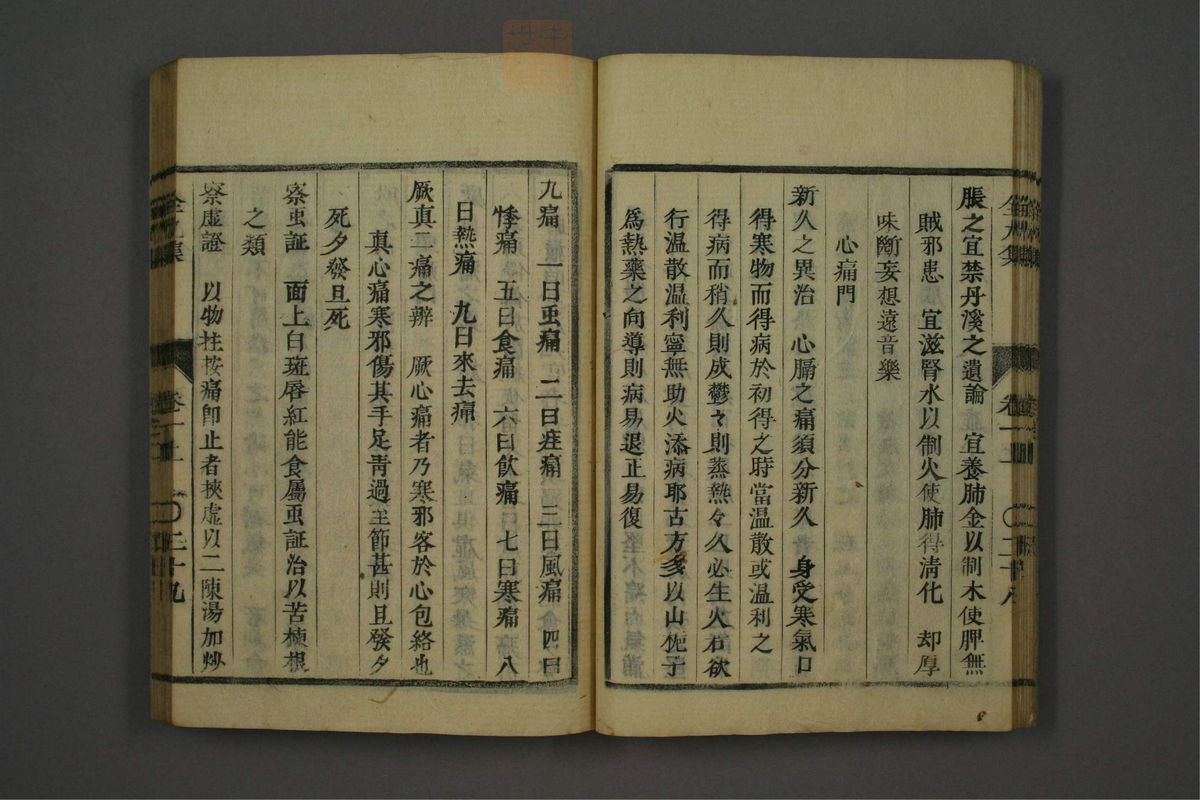 脹之宜禁丹溪之遺論　宜養肺金以制木使脾無
賊邪患　宜滋腎水以制火使肺得清化　却厚
味斷妄想遠音樂
心痛門
新久之異治　心膈之痛須分新久　身受寒氣口
得寒物而得病於初得之時當温散或温利之
得病而稍久則成鬱々則蒸熱々久必生火若欲
行温散温利寧無助火添病耶古方多以山梔子
爲熱藥之向導則病易退正易復
九痛　一曰虫痛　二曰疰痛　三曰風痛　四曰
悸痛　五曰食痛　六曰飲痛　七曰寒痛　八
曰熱痛　九曰來去痛
厥真二痛之辨　厥心痛者乃寒邪客於心包絡也
真心痛寒邪傷其手足青過至節甚則旦發夕
死夕發旦死
察虫証　面上白斑唇紅能食屬虫証治以苦楝根
之類
察虚證　以物拄按痛卽止者挾虚以二陳湯加炒
卷
二十八
卷
二十九